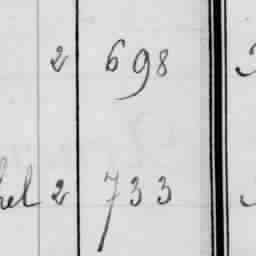 2 698
hel 2 733